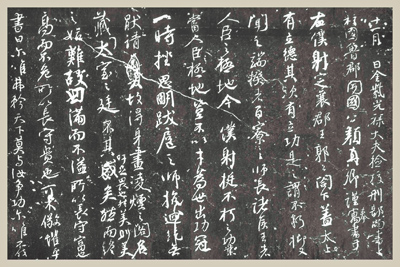 十一月 日金紫光祿大夫檢校刑部尚書上
柱國魯郡開國公顏真卿謹奉書于
右僕射定襄郡王郭公閣下蓋太上
有立德其次有立功是之謂不朽抑又
聞之端揆者百寮之師長諸侯王者
人臣之極地今僕射挺不朽之功業
當人臣極地豈不以才為世出功冠
一時挫思明跋扈之師抗迴紇無
厭之請故得身畫凌煙之閣名
藏太室之廷吁足畏也然美則美矣而終
之始難故曰滿而不溢所以長守富
高而不危所以長守貴也可不儆懼乎
書曰爾唯弗矜天下莫與汝爭功爾唯不